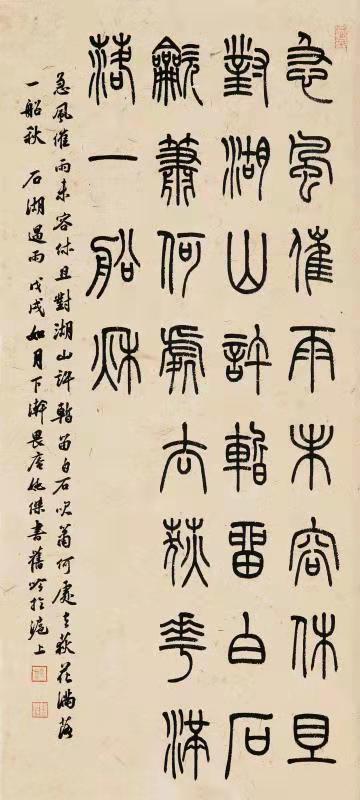 急風催雨未容休且
對湖山許暫留白石
龡簫何處去荻花滿
落一船秋
急風催雨未容休且對湖山許暫留白石吹簫何處去荻花滿落
一船秋 石湖遇雨 戊戌如月下澣畏傑書舊吟於滬上